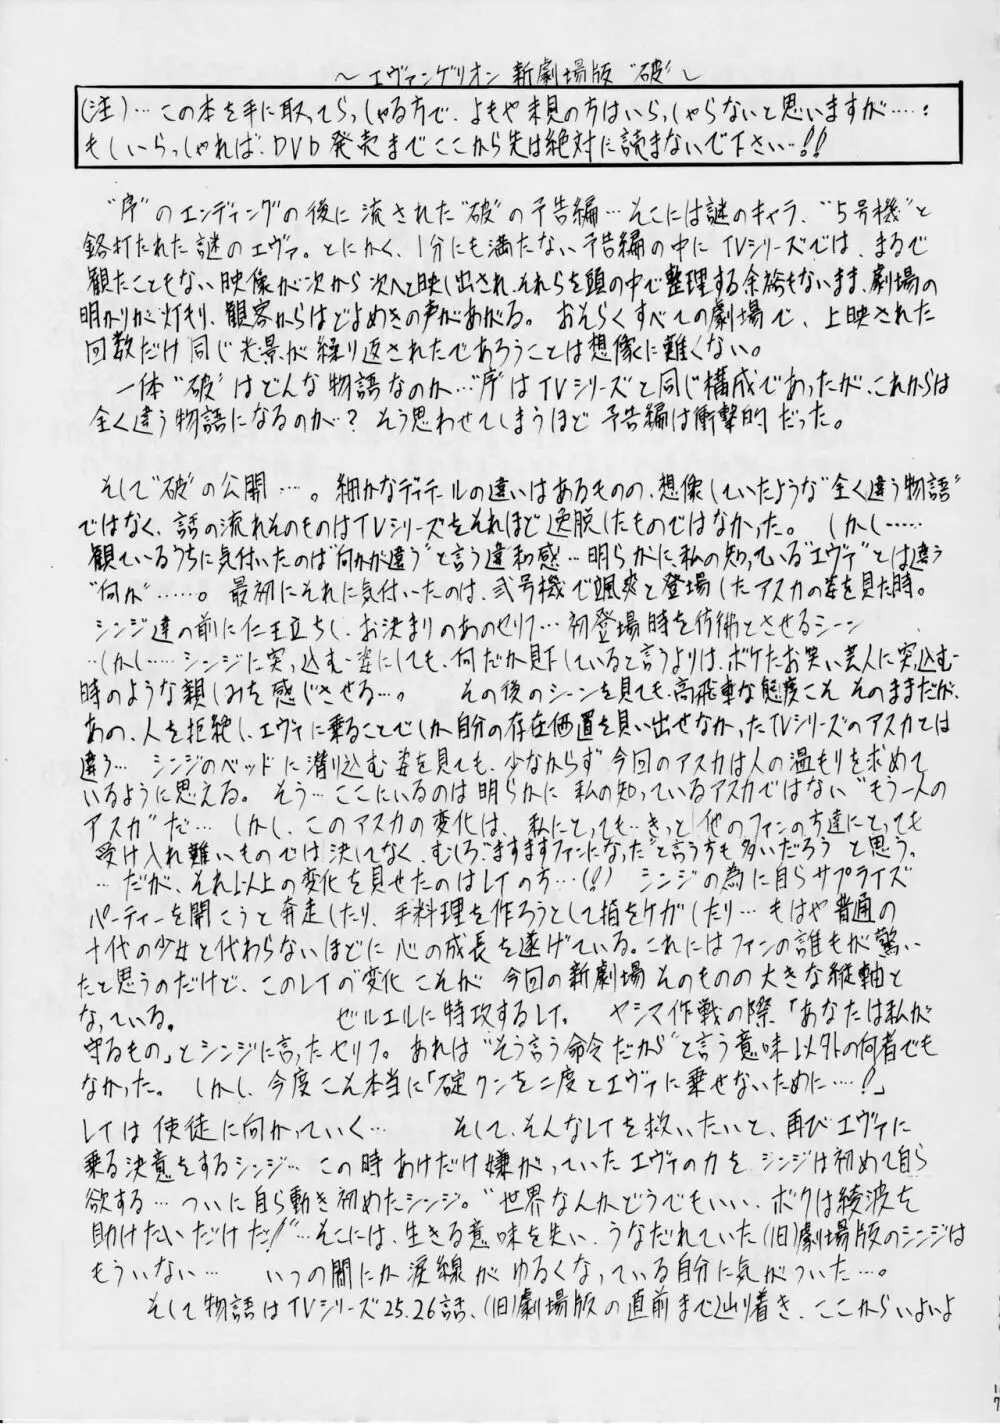 ～エヴァンゲリオン 新劇場版 "破"～
(注)…この本を手に取ってらっしゃる方で、よもや未見の方はいらっしゃらないと思いますが……:
もしいらっしゃれば、DVD発売までここから先は絶対に読まないで下さい…!!
"序"のエンディングの後に流された"破"の予告編…そこには謎のキャラ、"5号機"と
銘打たれた謎のエヴァ。とにかく、1分にも満たない予告編の中にTVシリーズでは、まるで
観たこともない映像が次から次へと映し出され、それらを頭の中で整理する余裕もないまま、劇場の
明かりが灯もり、観客からはどよめきの声があがる。おそらくすべての劇場で、上映された
回数だけ同じ光景が繰り返されたであろうことは想像に難くない。
一体"破"はどんな物語なのか…"序"はTVシリーズと同じ構成であったが、これからは
全く違う物語になるのか…?そう思わせてしまうほど予告編は衝撃的だった。
そして"破"の公開…。細かなディテールの違いはあるものの、想像していたような"全く違う物語"
ではなく、話の流れそのものはTVシリーズをそれほど逸脱したものではなかった。しかし……
観ているうちに気付いたのは"何かが違う"と言う違和感…明らかに私の知っている"エヴァ"とは違う
"何か"……。最初にそれに気付いたのは、弐号機で颯爽と登場したアスカの姿を見た時。
シンジ達の前に仁王立ちし、お決まりのあのセリフ…初登場時を彷彿とさせるシーン
…しかし……シンジに突っ込む姿にしても、何だか見下していると言うよりは、ボケたお笑い芸人に突っ込む
時のような親しみを感じさせる…。その後のシーンを見ても、高飛車な態度こそそのままだが、
あの、人を拒絶し、エヴァに乗ることでしか自分の存在価値を見い出せなかったTVシリーズのアスカとは
違う…シンジのベッドに潜り込む姿を見ても、少なからず今回のアスカは人の温もりを求めて
いるように思える。そう…ここにいるのは明らかに私の知っているアスカではない"もう一人の
アスカ"だ…しかし、このアスカの変化は、私にとっても…きっと他のファンの方達にとっても
受け入れ難いものでは決してなく、むしろ"ますますファンになった"と言う方も多いだろうと思う。
…だが、それ以上の変化を見せたのはレイの方…(!)シンジの為に自らサプライズ
パーティーを開こうと奔走したり、手料理を作ろうとして指をケガしたり…もはや普通の
十代の少女と代わらないほどに心の成長を遂げている。これにはファンの誰もが驚い
たと思うのだけど、このレイの"変化"こそが今回の新劇場そのものの大きな縦軸と
なっている。ゼルエルに特攻するレイ。ヤシマ作戦の際「あなたは私が
守るもの」とシンジに言ったセリフ。あれは"そう言う命令だから"と言う意味以外の何者でも
なかった。しかし、今度こそ本当に「碇クンを二度とエヴァに乗せないために…!」
レイは使徒に向かっていく…そして、そんなレイを救いたいと、再びエヴァに
乗る決意をするシンジ…この時あれだけ嫌がっていたエヴァの力をシンジは初めて自ら
欲する…ついに自ら動き初めたシンジ。"世界なんかどうでもいい、ボクは綾波を
助けたいだけだ!"…そこには、生きる意味を失い、うなだれていた(旧)劇場版のシンジは
もういない…いつの間にか涙線がゆるくなっている自分に気がついた…。
そして物語はTVシリーズ25.26話、(旧)劇場版の直前まで辿り着き、ここからいよいよ
17